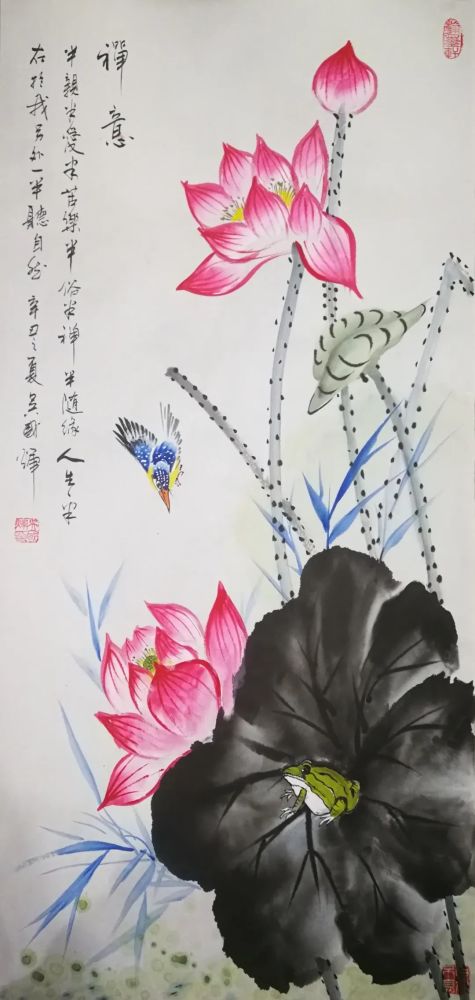 禪意
半親半愛半苦樂半俗半禪半隨緣人生一半
在於我另外一半聽自然辛丑之夏吳國鐸